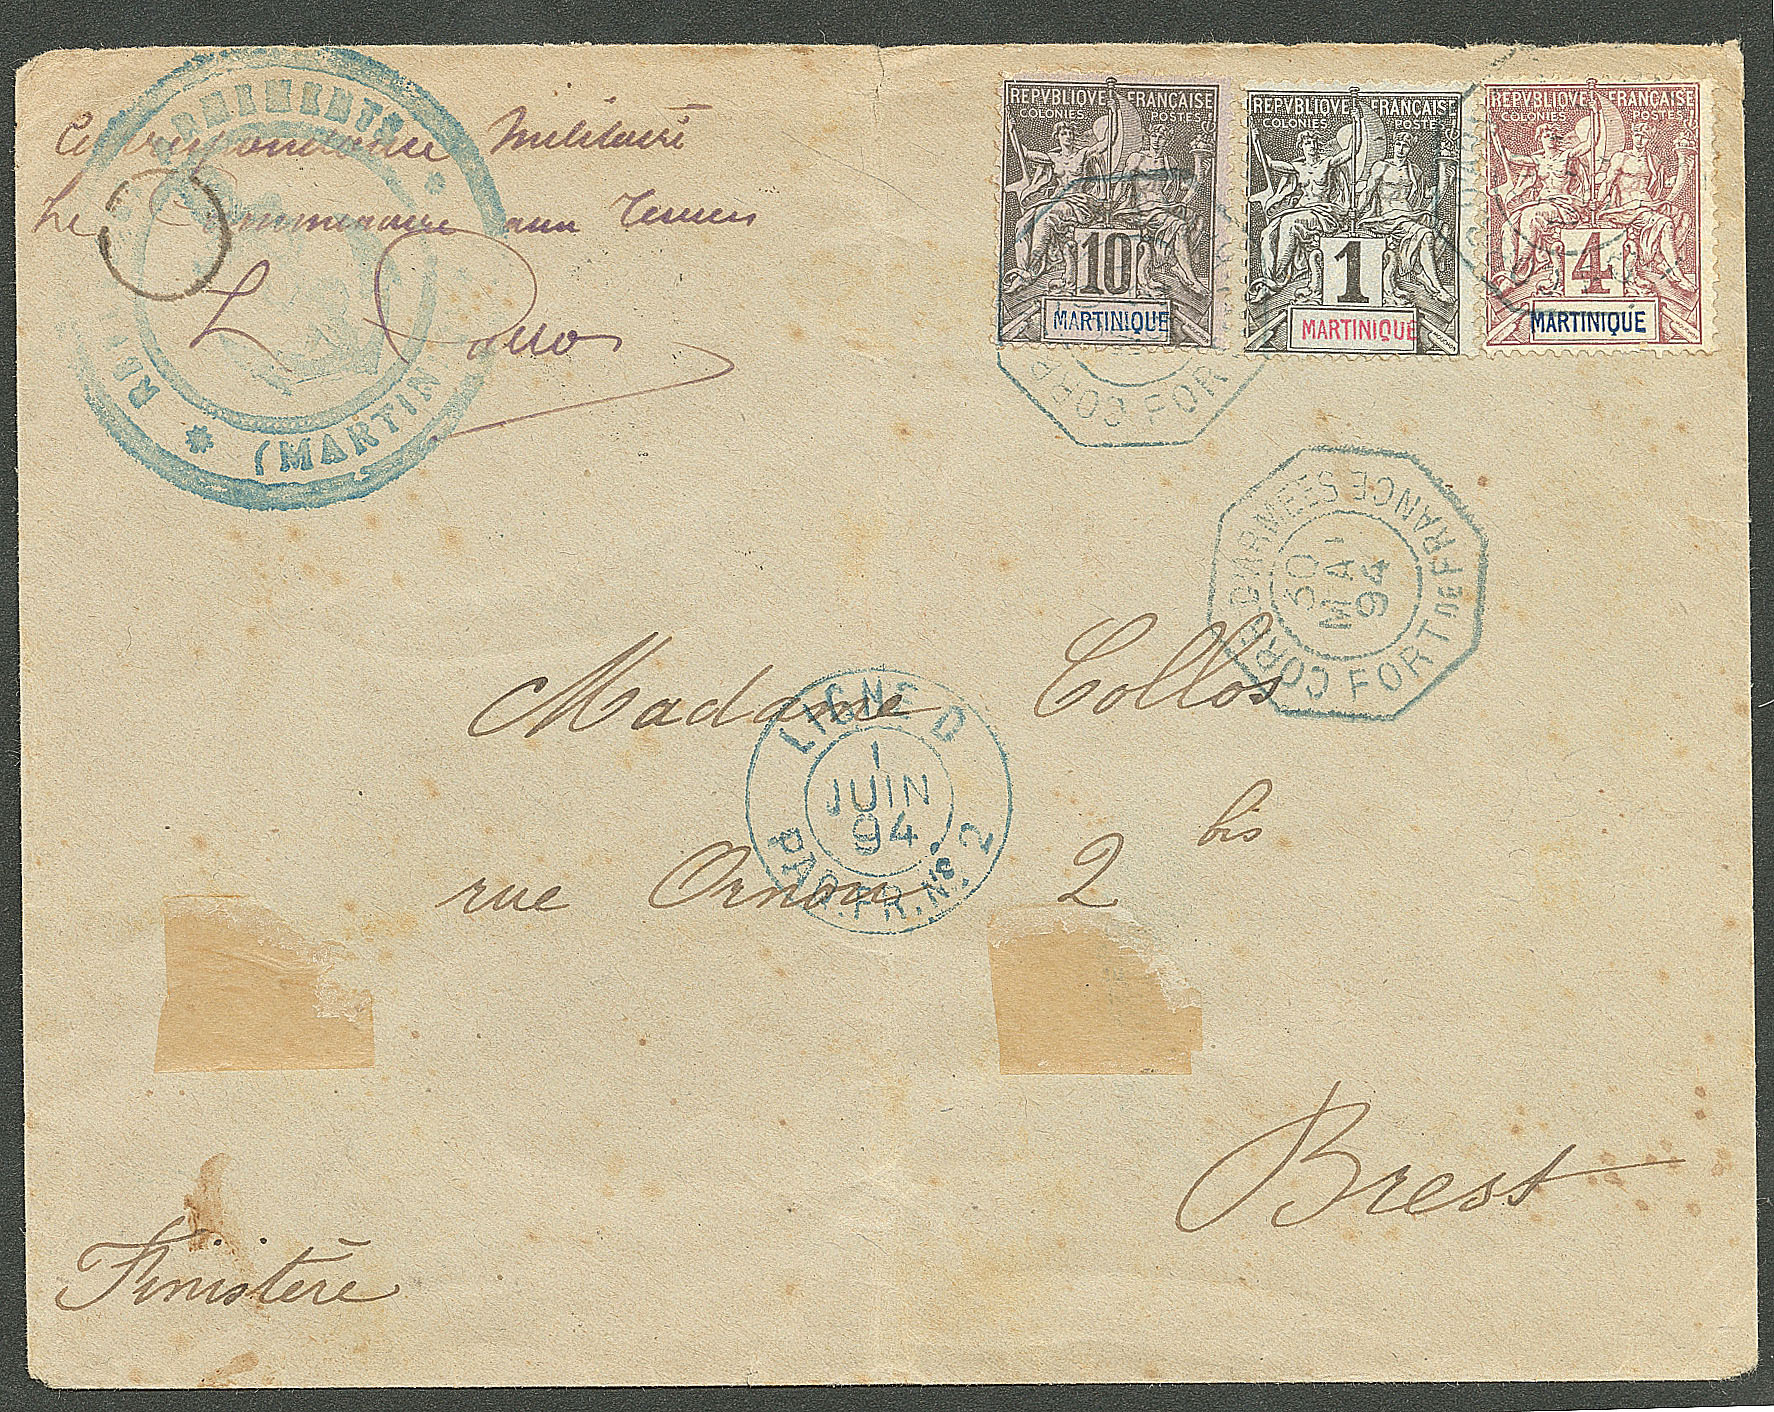 Correspondance Militaire
Le Commissaire aux
(MARTIN
REPVBLIQVE FRANÇAISE
COLONIES POSTES
10
MARTINIQUE
REPVBLIQVE FRANÇAISE
COLONIES POSTES
1
MARTINIQUE
REPVBLIQVE FRANÇAISE
COLONIES POSTES
4
MARTINIQUE
CORR FOR
CORR. D'ARMEES FORT DE FRANCE
30
MAI
94
Madame Collos
LIGNE D
1
JUIN
94
PAQ.FR.Nº 2
rue Ornou 2 bis
Brest
Finistère